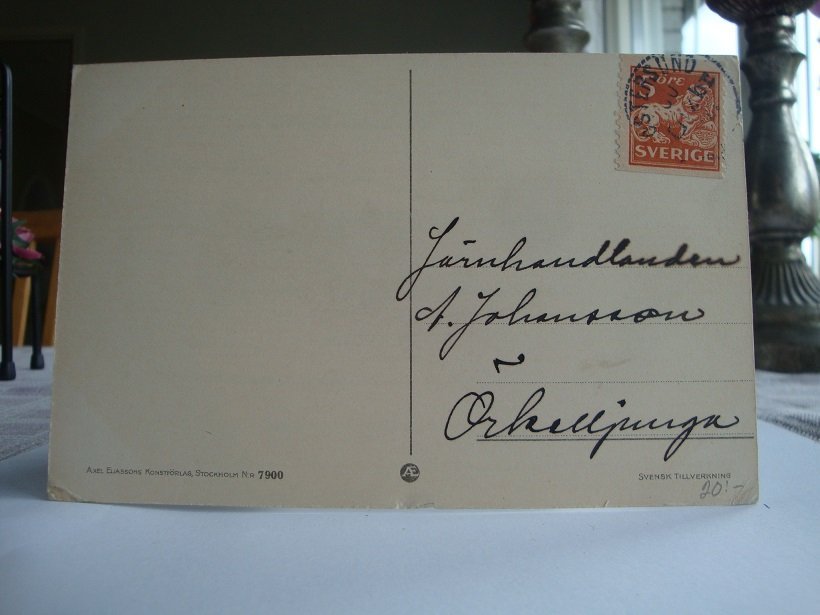 5 ÖRE
SVERIGE
Järnhandlanden
A. Johansson
~
Örkelljunga
AXEL ELIASSONS KONSTFÖRLAG, STOCKHOLM N:R 7900
Æ
SVENSK TILLVERKNING
20:-